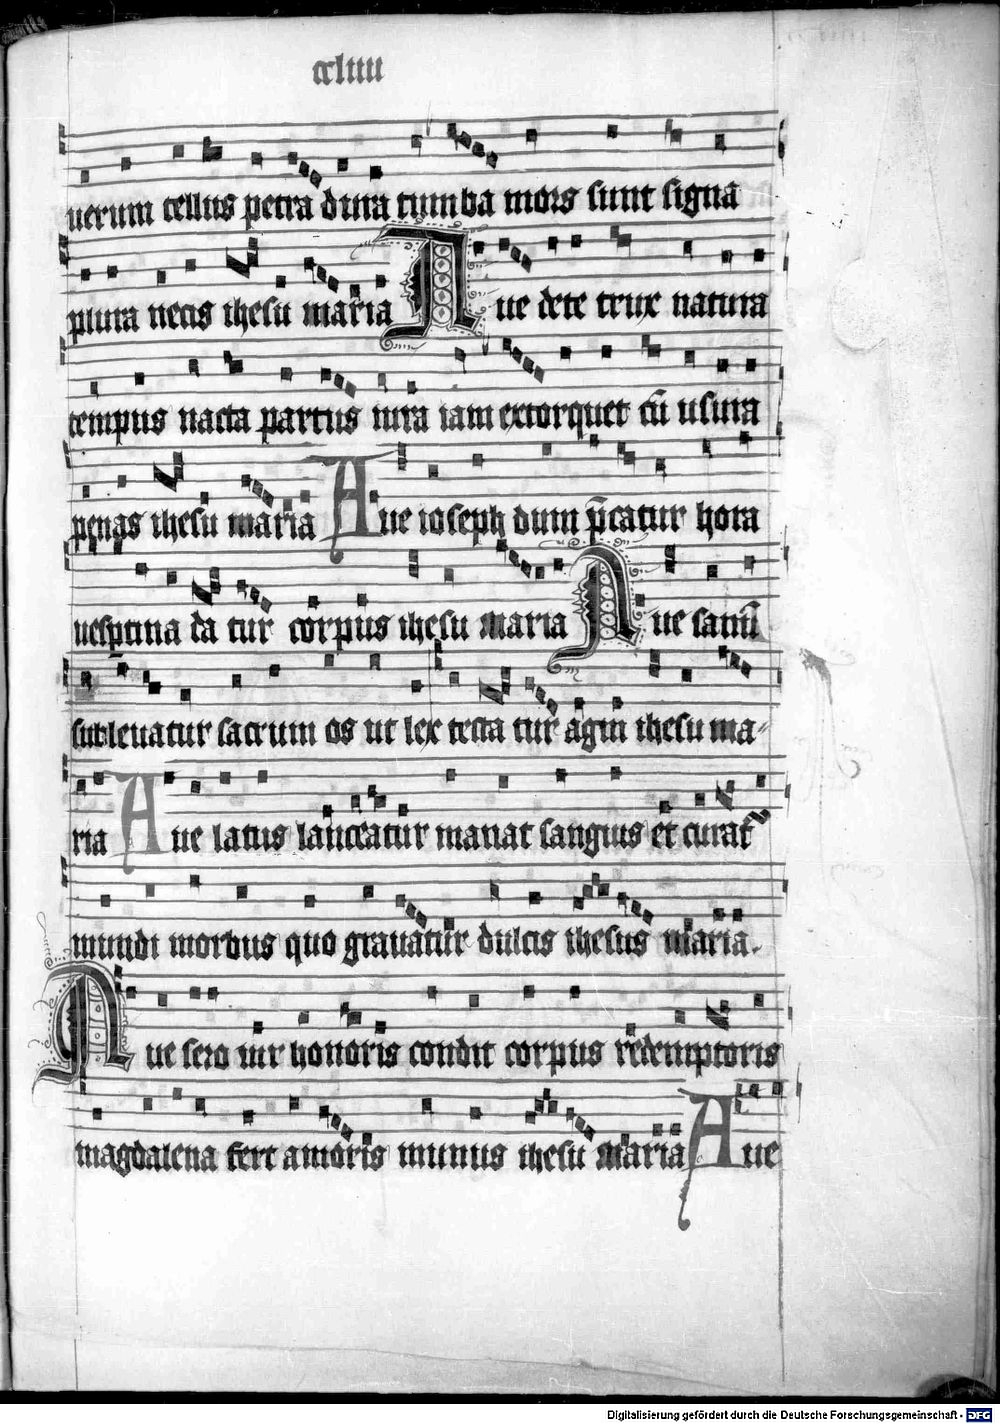 ccliiii
uerum tellus petra dura tumba mors sunt signa
plura necis ihesu maria Aue dete trux natura
tempus nacta partus iura iam extorquet cū usura
penas ihesu maria Aue ioseph dum p̄catur hora
uesptina da tur corpus ihesu maria Aue
subleuatur sacrum os ut lex testa tur agm ihesu ma-
ria Aue latus lanceatur manat sangius et curat
mundi morbus quo grauatur dulcis ihesus maria.
Aue sero uir honoris condit corpus redemptoris
magdalena fert amoris munus ihesu maria Aue
Digitalisierung gefördert durch die Deutsche Forschungsgemeinschaft - DFG